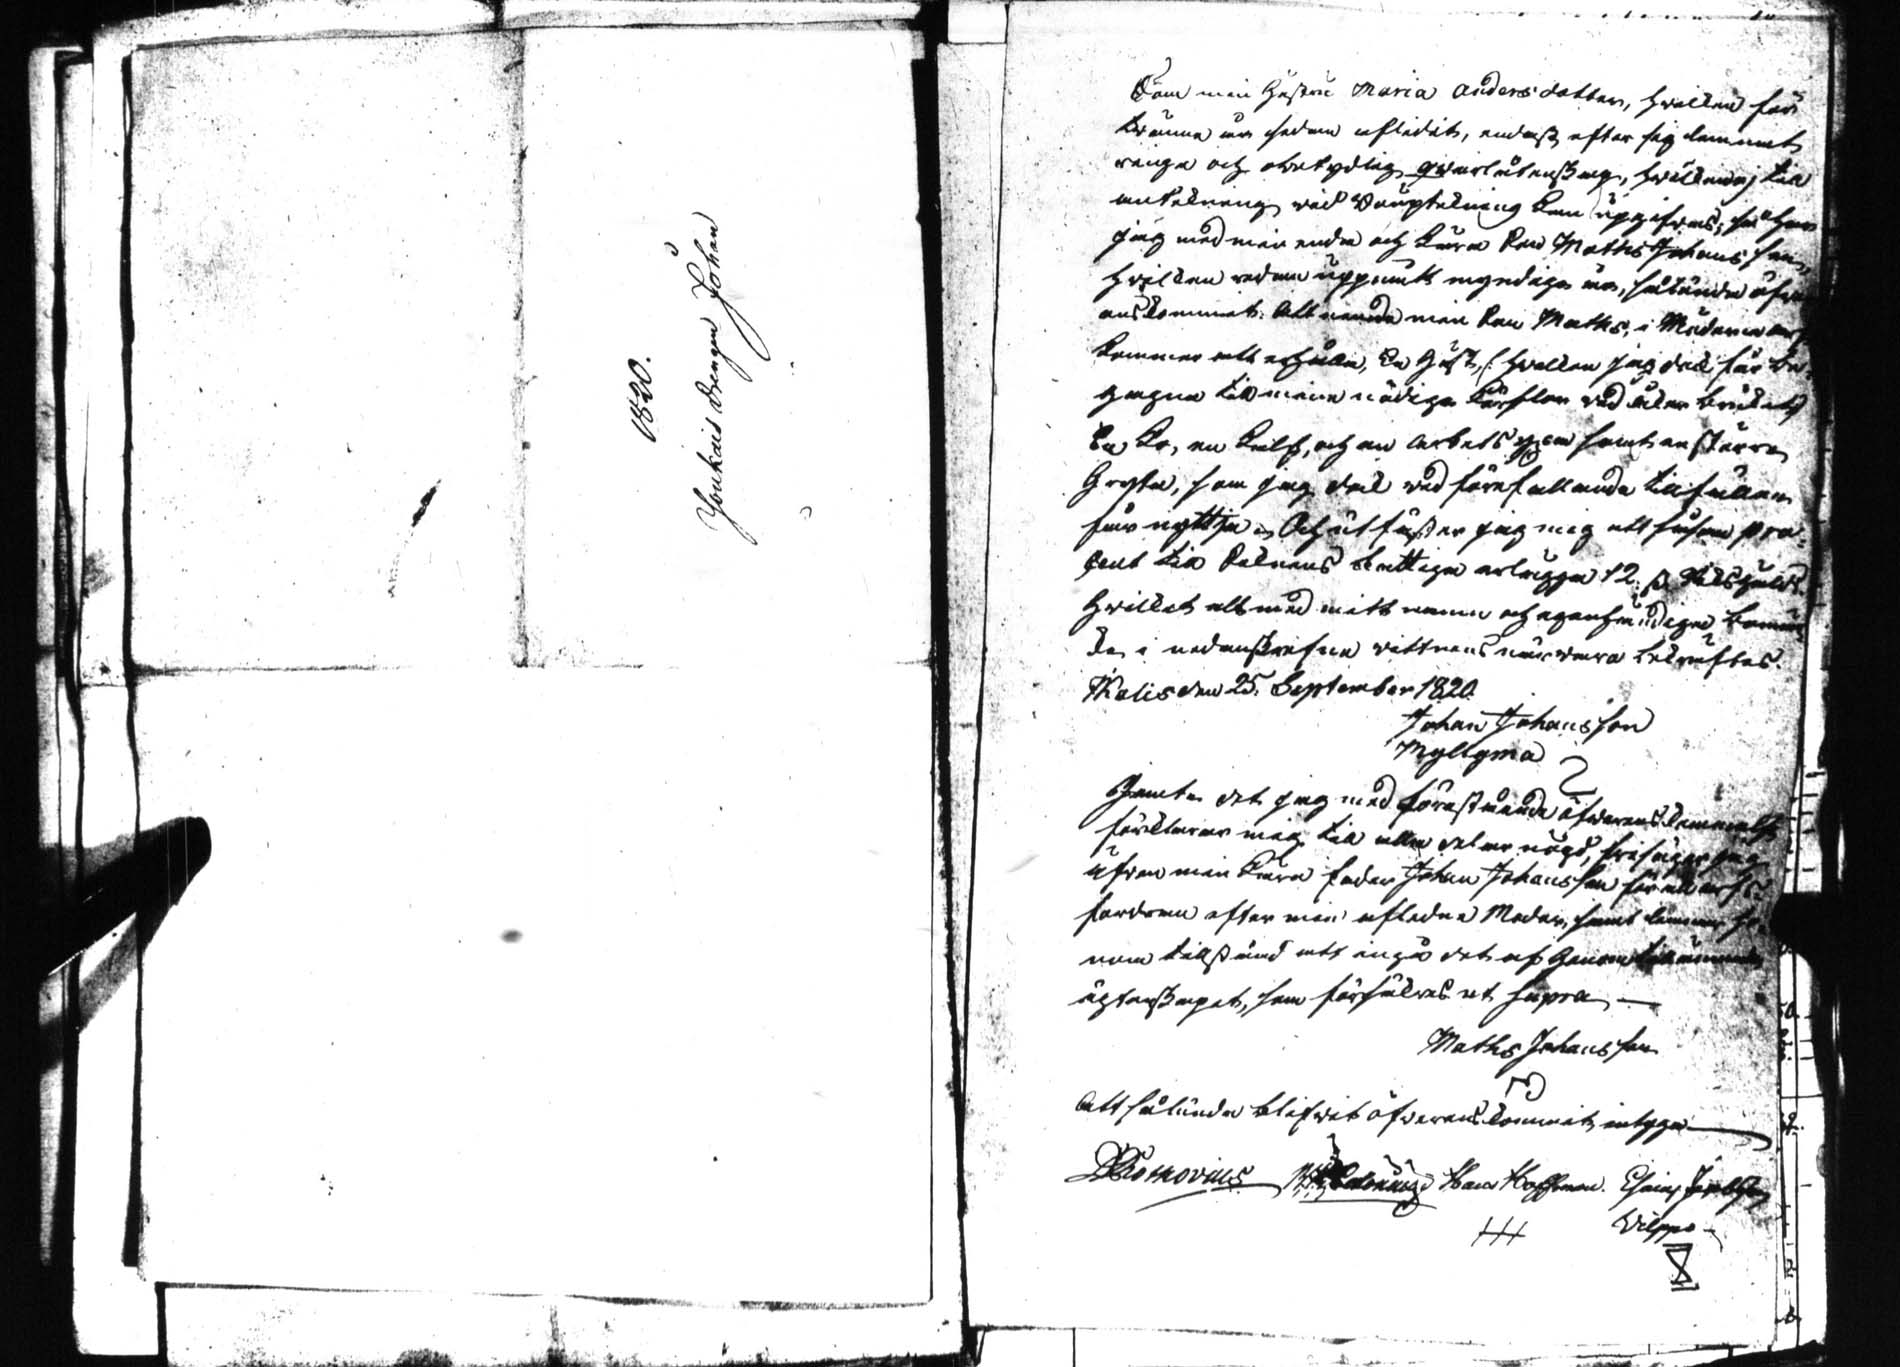 1820.
Drengen Johan
Som min Hustru Maria Andersdotter, hvilken för
trenne år sedan aflidit, endast efter sig lemnat
ringa och obetydlig qvarlåtenskap, hvilken ej till
anteckning vid Bouptekning kan uppgifvas, så har
jag med min enda och kära Son Maths Johansson,
hvilken redan uppnått myndiga år, sålunda öfver-
enskommit: Att nemde min Son Maths, i Möderne arf
kommer att erhålla, En Häst, (: hvilken jag dock får be-
gagna till mina nödiga körslor vid åker bruket :)
En Ko, en Kalf, och en arbets samt en större
Gryta, som jag dock vid förefallande tillfällen
får nyttja. Och utfäster jag mig att såsom pro-
cent till Socknens fattiga erlägga 12 s. Riksgälds.
Hvilket allt med mitt namn och egenhändiga bomär-
ke, i nedanskrefne vittnens närvaro bekräftas.
den 25. September 1820.
Johan Johansson
Myllymä
Jemte det jag med förestående öfverenskommelse
förklarar mig till alla delar nögd, frisäger jag
äfven min kära Fader Johan Johansson för all arfs-
fordran efter min aflidna Moder, samt lemnar ho-
nom tillstånd att ingå det af honom
ägtenskapet, som försäkras ut supra
Maths Johansson
Att sålunda blifvit öfverenskommit, intyga
Hans Hoffman. Jacobsson
Vilppo